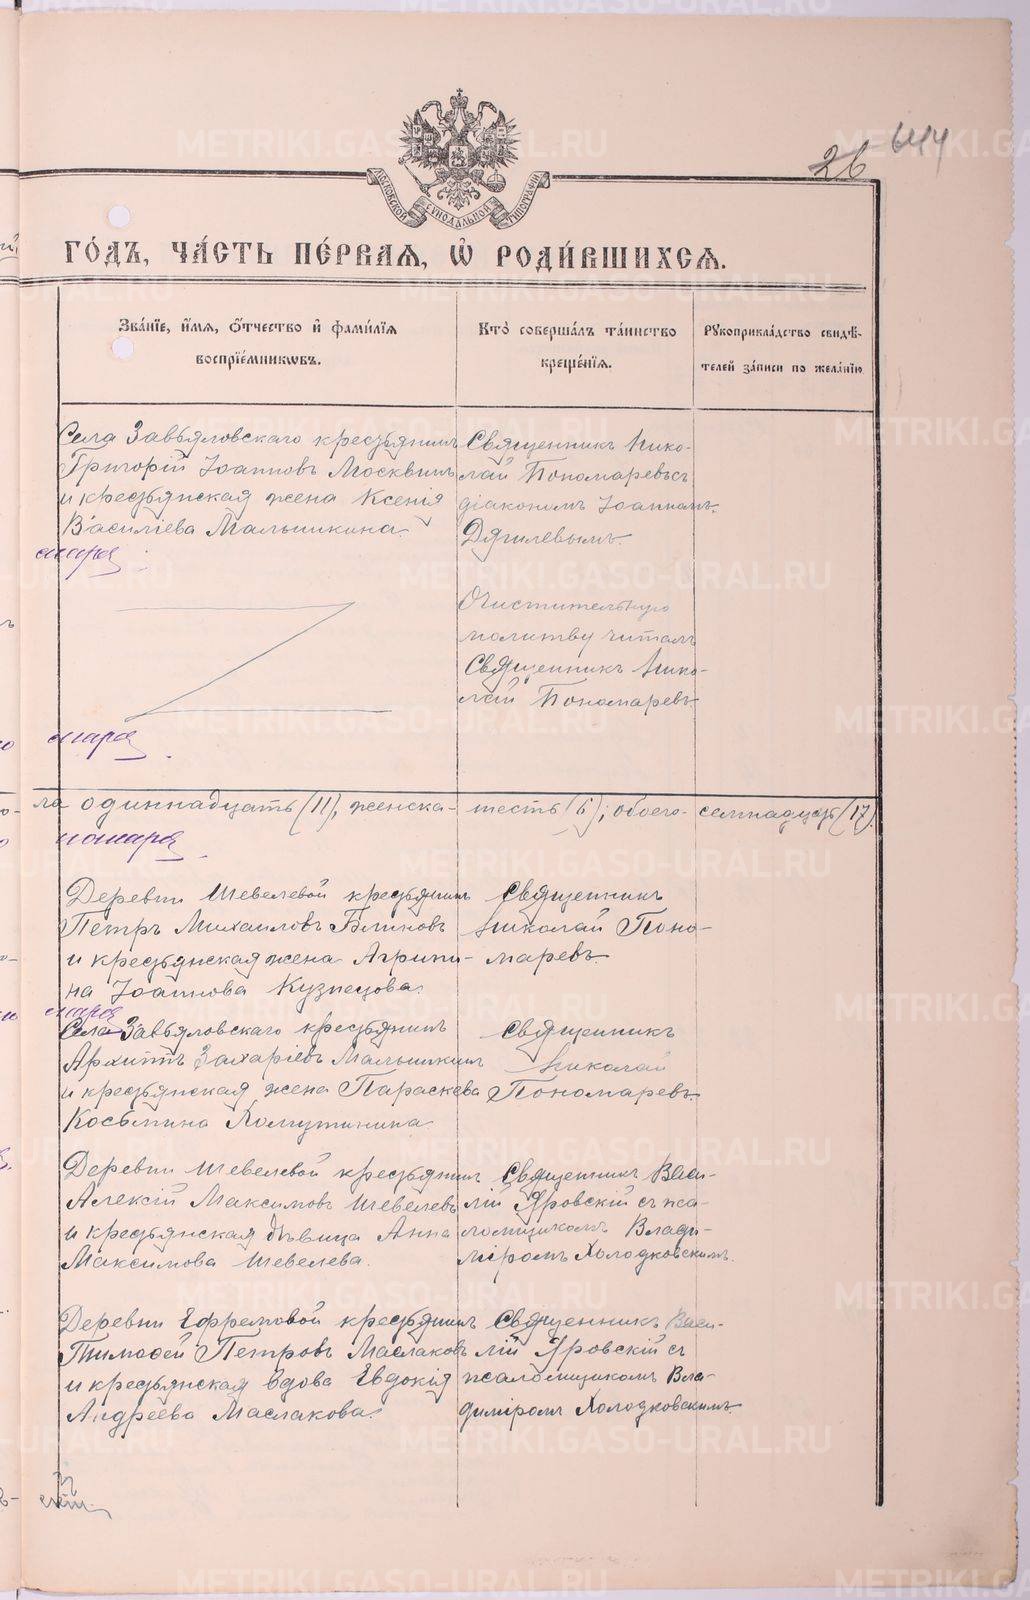 26 644
МОСКОВСКОЙ СѴНОДАЛЬНОЙ ТИПОГРАФІИ
ГО́ДЪ, ЧА́СТЬ ПЕ́РВАЯ, Ѡ҆ РОДИ́ВШИХСЯ.
Зва́нїе, и҆́мя, ѻ҆́тчество и҆ фами́лїя
воспрїе́мникѡвъ.
Кто̀ соверша́лъ та́инство
креще́нїя.
Рꙋкоприкла́дство свидѣ́-
телей за́писи по жела́нїю
Села Завьяловскаго крестьянинъ
Григорій Іоанновъ Москвинъ
и крестьянская жена Ксенія
Василіева Малышкина.
Священникъ Нико-
лай Пономаревъ съ
діакономъ Іоанномъ
Дягилевымъ.
Очистительную
молитву читалъ
Священникъ Нико-
лай Пономаревъ
ла одиннадцать (11), женска- шесть (6); обоего- семнадцать (17).
Деревни Шевелевой крестьянинъ
Петръ Михаиловъ Блиновъ
и крестьянская жена Агрипи-
на Іоаннова Кузнецова.
Священникъ
Николай Поно-
маревъ.
Села Завьяловскаго крестьянинъ
Архиппъ Захаріевъ Малышкинъ
и крестьянская жена Параскева
Косьмина Хомутинина
Священникъ
Николай
Пономаревъ.
Деревни Шевелевой крестьянинъ
Алексій Максимовъ Шевелевъ
и крестьянская дѣвица Анна
Максимова Шевелева.
Священникъ Васи-
лій Яровскій съ пса-
ломщикомъ Влади-
міромъ Холодковскимъ.
Деревни Ефремовой крестьянинъ
Тимоѳей Петровъ Маслаковъ
и крестьянская вдова Евдокія
Андреева Маслакова.
Священникъ Васи-
лій Яровскій съ
псаломщикомъ Вла-
диміромъ Холодковскимъ.
METRIKI.GASO-URAL.RU